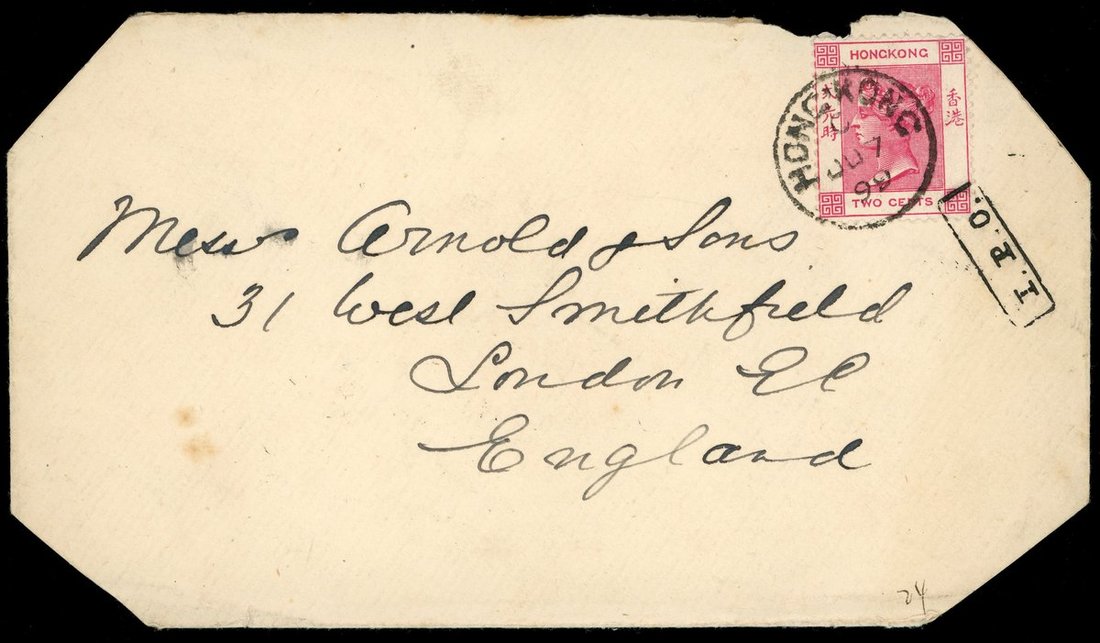 HONGKONG
香港
TWO CENTS
HONG KONG
JU 7
99
I. P. O.
Messrs Arnold & Sons
31 West Smithfield
London EC
England
24